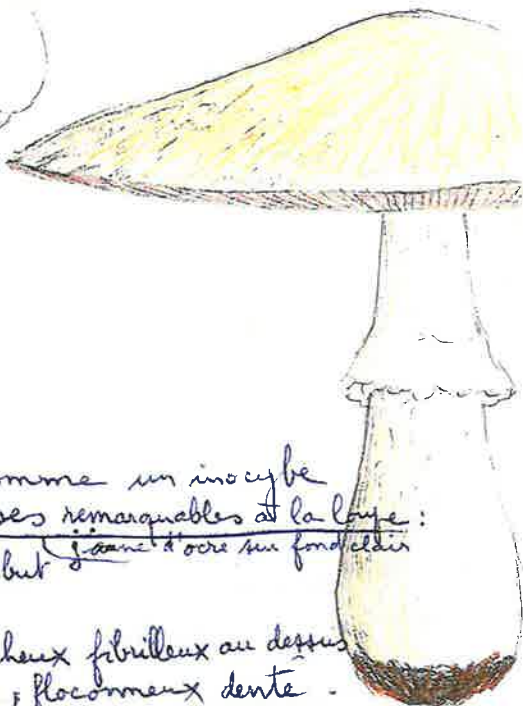 omme un inocybe
es remarquables à la loupe :
but jaune d'ocre sur fond clair
heux fibrilleux au dessus
, floconneux denté .